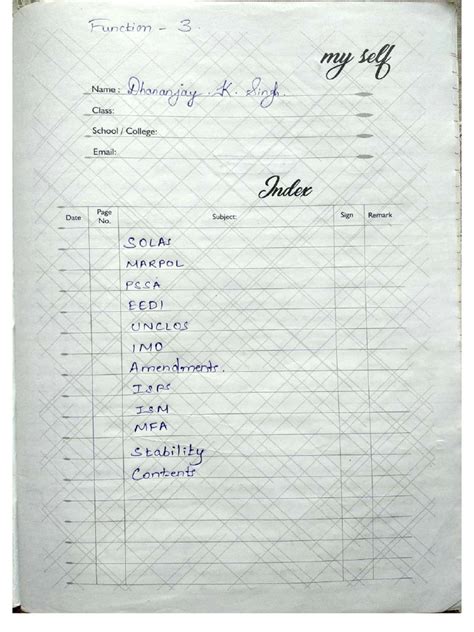 Function - 3.
my self
Name: Dhananjay. K. Singh.
Class:
School / College:
Email:
Index
Date Page No. Subject Sign Remark
SOLAS
MARPOL
PSSA
EEDI
UNCLOS
IMO
Amendments.
ISPS
ISM
MFA
Stability
Contents